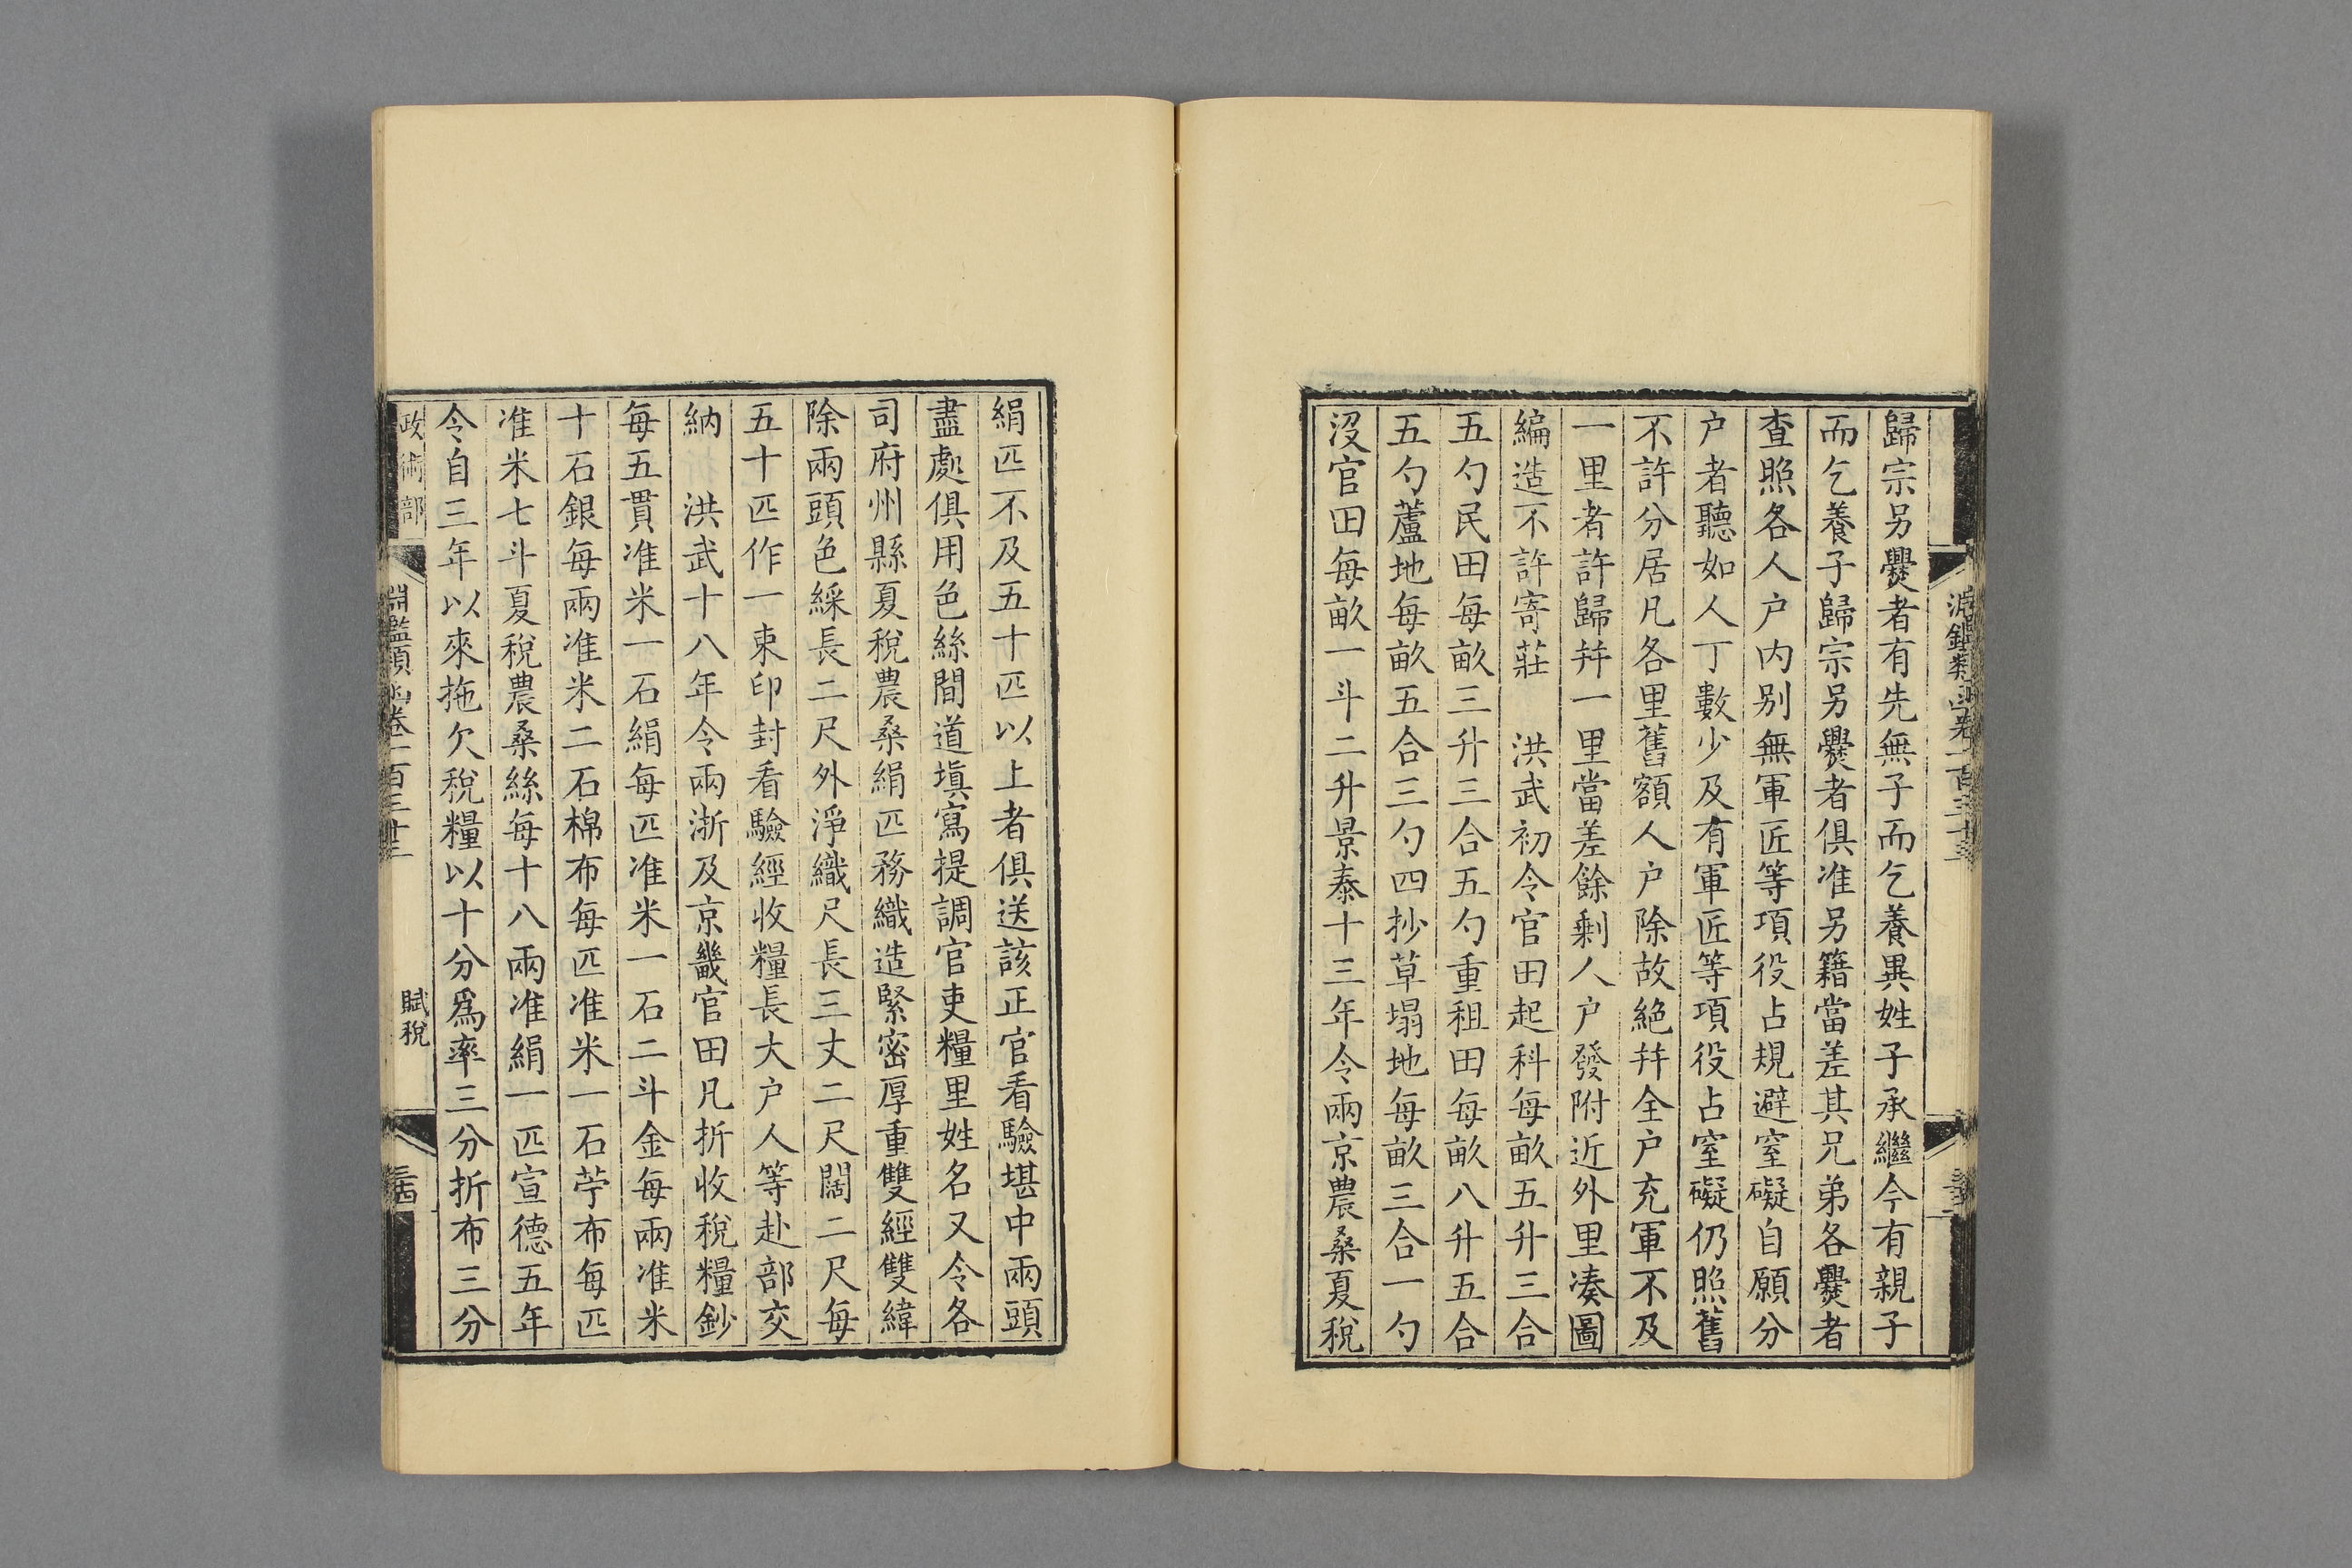 歸宗另爨者有先無子而乞養異姓子承繼今有親子
而乞養子歸宗另爨者俱准另籍當差其兄弟各爨者
查照各人户内别無軍匠等項役占規避窒礙自願分
户者聽如人丁數少及有軍匠等項役占窒礙仍照舊
不許分居凡各里舊額人户除故絶幷全户充軍不及
一里者許歸幷一里當差餘剩人户發附近外里凑圖
編造不許寄莊　洪武初令官田起科每畝五升三合
五勺民田每畝三升三合五勺重租田每畝八升五合
五勺蘆地每畝五合三勺四抄草塌地每畝三合一勺
沒官田每畝一斗二升景泰十三年令兩京農桑夏稅
絹匹不及五十匹以上者俱送該正官看驗堪中兩頭
盡處俱用色絲間道塡寫提調官吏糧里姓名又令各
司府州縣夏稅農桑絹匹務織造緊密厚重雙經雙緯
除兩頭色綵長二尺外淨織尺長三丈二尺闊二尺每
五十匹作一束印封看驗經收糧長大户人等赴部交
納　洪武十八年令兩浙及京畿官田凡折收稅糧鈔
每五貫准米一石絹每匹准米一石二斗金每兩准米
十石銀每兩准米二石棉布每匹准米一石苧布每匹
准米七斗夏稅農桑絲每十八兩准絹一匹宣德五年
令自三年以來拖欠稅糧以十分爲率三分折布三分
政術部
淵鑑類函卷一百三十三
賦稅